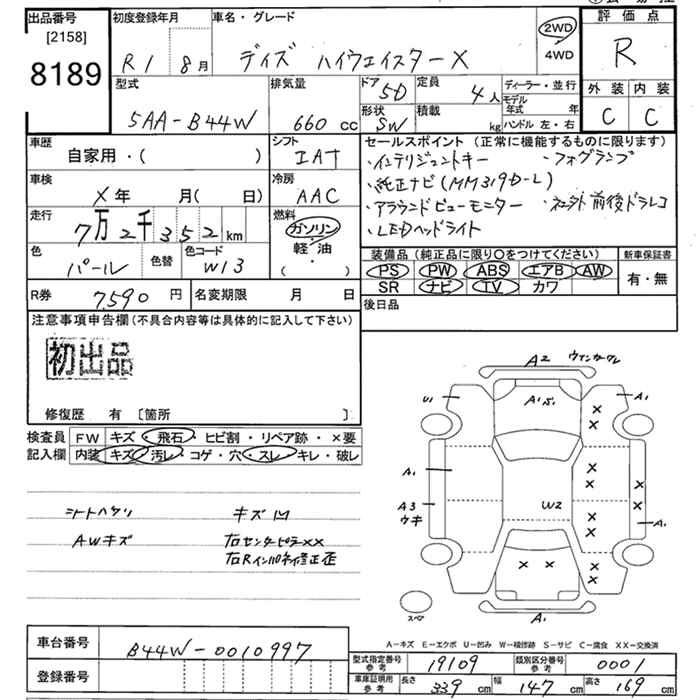 出品番号
[2158]
8189
初度登録年月
R1 8月
車名・グレード
デイズ ハイウェイスターX
2WD
4WD
評価点
R
外装 内装
C C
型式
5AA-B44W
排気量
660 cc
ドア 5D
形状 SW
定員 4人
積載 kg
ディーラー・並行
モデル年式 年
ハンドル 左・右
車歴
自家用・( )
シフト
IAT
車検
X年 月( 日)
冷房
AAC
走行
7万2千352 km
燃料
ガソリン
軽・油
( )
色
パール
色替
色コード
W13
R券 7,590 円
名変期限 月 日
セールスポイント (正常に機能するものに限ります)
・インテリジェントキー ・フォグランプ
・純正ナビ(MM319D-L)
・アラウンドビューモニター ・社外前後ドラレコ
・LEDヘッドライト
装備品 (純正品に限り○をつけてください)
PS PW ABS エアB AW
SR ナビ TV カワ
新車保証書
有・無
後日品
注意事項申告欄 (不具合内容等は具体的に記入して下さい)
初出品
修復歴 有 〔箇所 〕
検査員記入欄
FW キズ・飛石・ヒビ割・リペア跡・×要
内装 キズ・汚レ・コゲ・穴・スレ・キレ・破レ
シートハゲリ キズ凹
AWキズ 右センターピラXX
右Rインパネ修正歪
A2 ウインカーワレ
U1
A1
A1
A3
ウキ
W2
A1
A1
スペア
A-キズ E-エクボ U-凹み W-補修跡 S-サビ C-腐食 XX-交換済
車台番号
B44W-0010997
登録番号
型式指定番号 参考
19109
類別区分番号 参考
0001
車庫証明用 参考
長さ 339 cm
幅 147 cm
高さ 169 cm